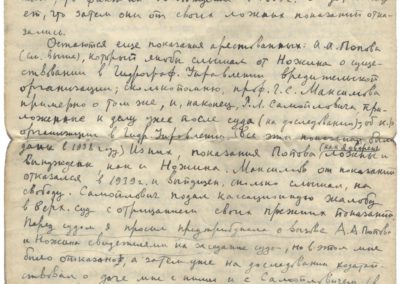 ет, что затем они от своих ложных показаний отка-
зались.
Остаются еще показания арестованных: А.А. Попова
(см. выше), который якобы слышал от Ножина о суще-
ствовании в Гидрограф. Управлении вредительской
организации; сколько помню, проф. Г.С. Максимова
примерно о том же, и, наконец, Р.Л. Самойловича при-
ложенные к делу уже после суда (на доследовании), об к.р.
организации в Гидр. Управлении. Все эти показания были
даны в 1938 году. Из них, показания Попова ложны и
вынуждены, как и Ножина. Максимов от показаний
отказался в 1939 г. и выпущен, сколько слышал, на
свободу. Самойлович подал кассационную жалобу
в Верх. суд с отрицанием своих прежних показаний.
Перед судом я просил трибунал о вызове А.А. Попова
и Ножина свидетелями на заседание суда, но в этом мне
было отказано, а затем уже на доследовании
о даче мне с ними и с Самойловичем (в